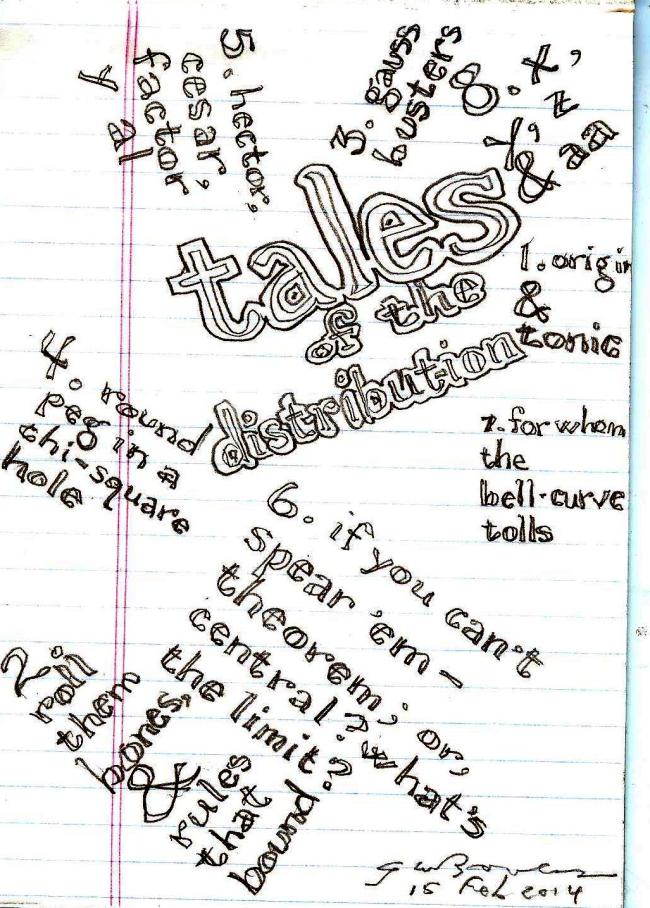 tales
of the
distribution
1. origin
&
tonic
2 roll
them
bones,
& rules
that
bound
3. gauss
busters
4. round
peg in a
chi-square
hole
5. hector,
cesar,
factor
y al
6. if you can't
spear 'em –
theorem; or,
central? what's
the limit?
7. for whom
the
bell-curve
tolls
8. x,
y, z
& aa
15 Feb 2014